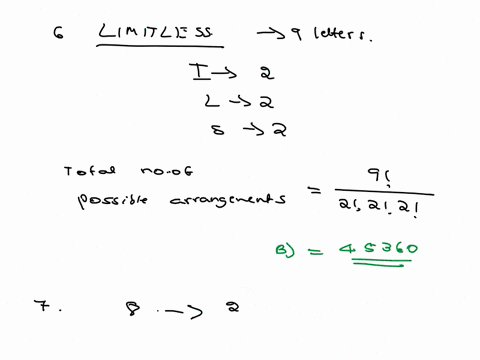 6 LIMITLESS → 9 letters.
I → 2
L → 2
S → 2
Total no.of possible arrangements = 9! / 2!, 2!. 2!
B) = 45360
7. 8 → 2